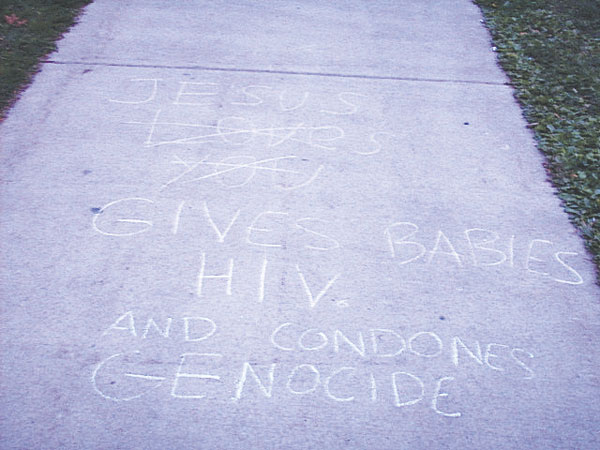 JESUS
LOVES
YOU
GIVES BABIES
HIV.
AND CONDONES
GENOCIDE